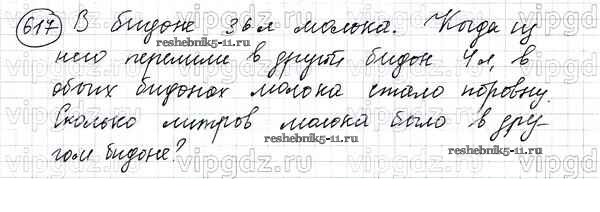 617 В бидоне 36 л молока. Когда из
reshebnik5-11.ru
него перелили в другой бидон 4 л, в
обоих бидонах молока стало поровну.
Сколько литров молока было в дру-
reshebnik5-11.ru
гом бидоне?
vipgdz.ru
reshebnik5-11.ru